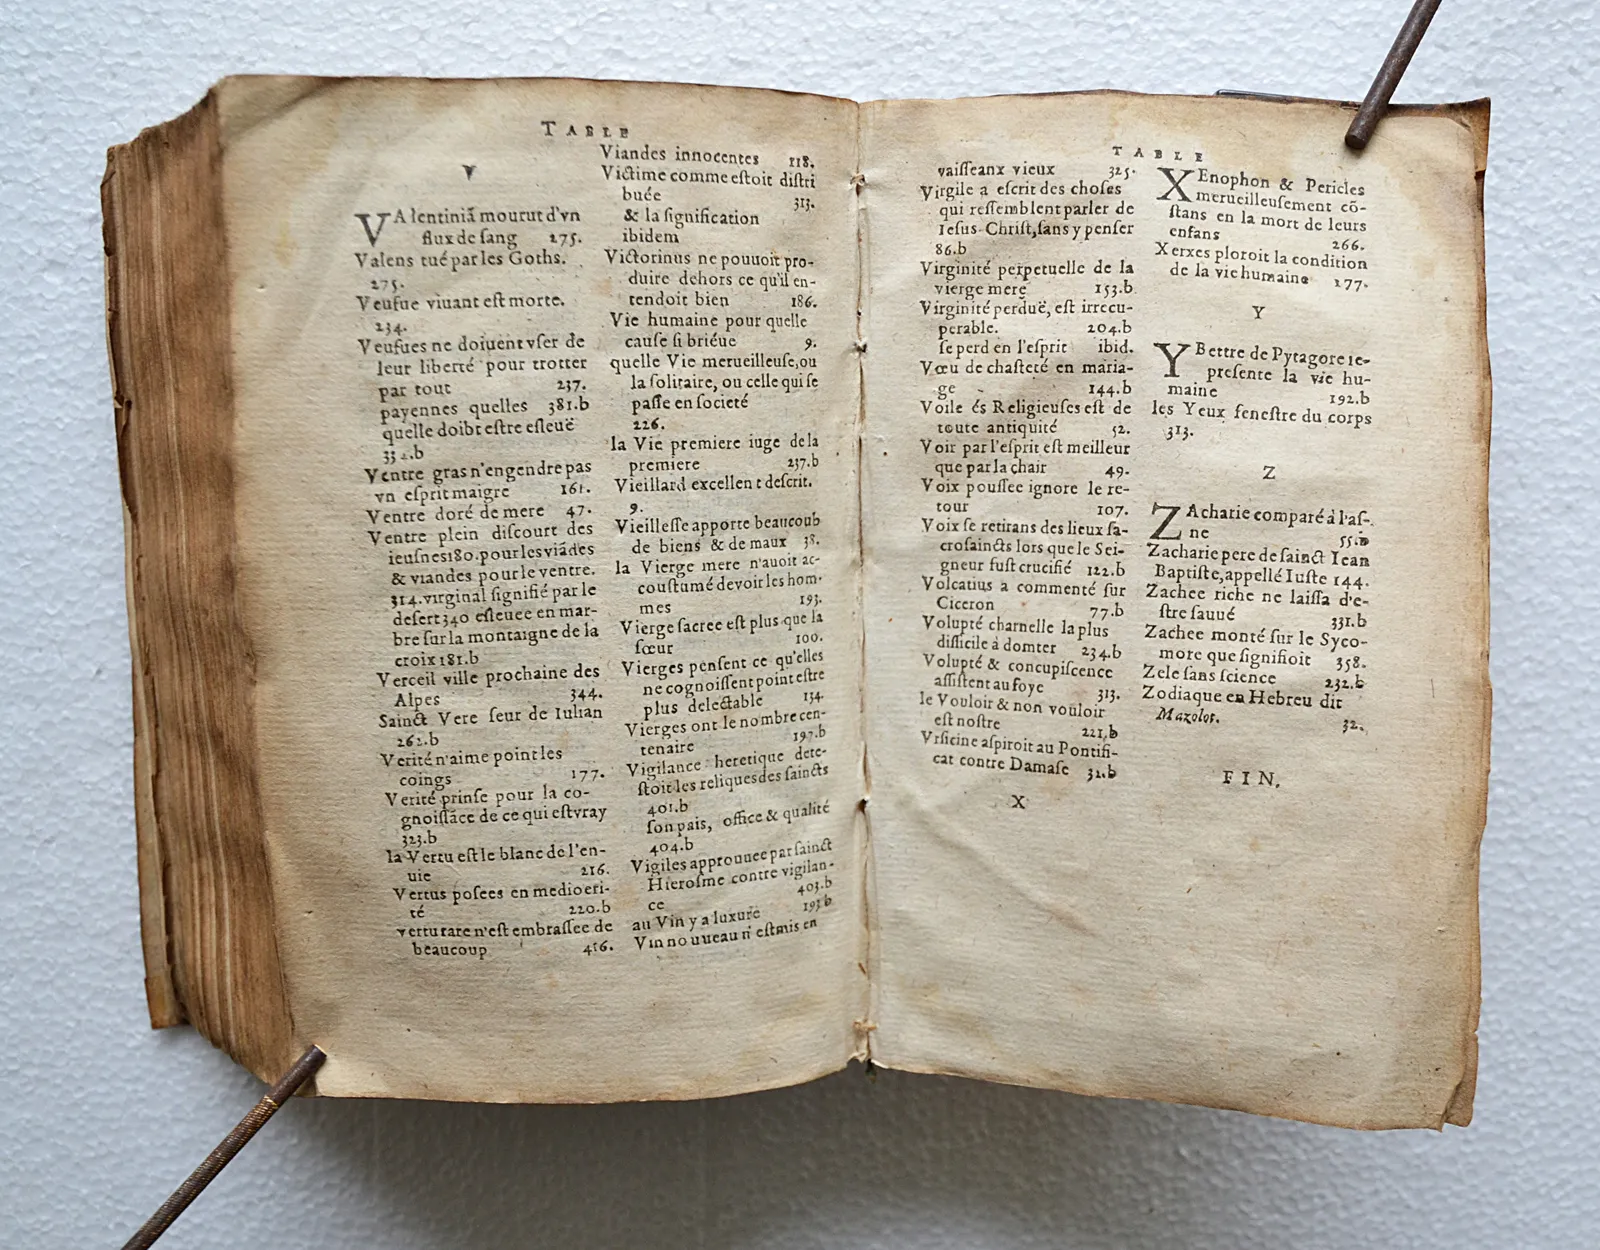 TABLE
V
VAlentiniã mourut d'vn
flux de sang 275.
Valens tué par les Goths.
275.
Veufue viuant est morte.
234.
Veufues ne doiuent vser de
leur liberté pour trotter
par tout 237.
payennes quelles 381.b
quelle doibt estre esleuë
Ventre gras n'engendre pas
vn esprit maigre 161.
Ventre doré de mere 47.
Ventre plein discourt des
ieusnes 180. pour les viãdes
& viandes pour le ventre.
314. virginal signifié par le
desert 340 esleuee en mar-
bre sur la montaigne de la
croix 181.b
Verceil ville prochaine des
Alpes 344.
Sainct Vere seur de Iulian
262.b
Verité n'aime point les
coings 177.
Verité prinse pour la co-
gnoissãce de ce qui est vray
323.b
la Vertu est le blanc de l'en-
uie 216.
Vertus posees en mediocri-
té 220.b
vertu rare n'est embrassee de
beaucoup 416.
Viandes innocentes 118.
Victime comme estoit distri
buée 313.
& la signification
ibidem
Victorinus ne pouuoit pro-
duire dehors ce qu'il en-
tendoit bien 186.
Vie humaine pour quelle
cause si briéue 9.
quelle Vie merueilleuse, ou
la solitaire, ou celle qui se
passe en societé
226.
la Vie premiere iuge de la
premiere 237.b
Vieillard excellent descrit.
9.
Vieillesse apporte beaucoub
de biens & de maux 38.
la Vierge mere n'auoit ac-
coustumé devoir les hom-
mes 193.
Vierge sacree est plus que la
sœur 100.
Vierges pensent ce qu'elles
ne cognoissent point estre
plus delectable 134.
Vierges ont le nombre cen-
tenaire 197.b
Vigilance heretique dete-
stoit les reliques des saincts
401.b
son pais, office & qualité
404.b
Vigiles approuuee par sainct
Hierosme contre vigilan-
ce 403.b
au Vin y a luxure 193.b
Vin nouueau n'est mis en
TABLE
vaisseanx vieux 325.
Virgile a escrit des choses
qui ressemblent parler de
Iesus-Christ, sans y penser
86.b
Virginité perpetuelle de la
vierge mere 153.b
Virginité perduë, est irrecu-
perable. 204.b
se perd en l'esprit ibid.
Vœu de chasteté en maria-
ge 144.b
Voile és Religieuses est de
toute antiquité 52.
Voir par l'esprit est meilleur
que par la chair 49.
Voix poussee ignore le re-
tour 107.
Voix se retirans des lieux sa-
crosaincts lors que le Sei-
gneur fust crucifié 122.b
Volcatius a commenté sur
Ciceron 77.b
Volupté charnelle la plus
difficile à domter 234.b
Volupté & concupiscence
assistent au foye 313.
le Vouloir & non vouloir
est nostre 221.b
Vrsicine aspiroit au Pontifi-
cat contre Damase 32.b
X
XEnophon & Pericles
merueilleusement cõ-
stans en la mort de leurs
enfans 266.
Xerxes ploroit la condition
de la vie humaine 177.
Y
YBettre de Pytagore re-
presente la vie hu-
maine 192.b
les Yeux fenestre du corps
313.
Z
ZAcharie comparé à l'as-
ne 55.b
Zacharie pere de sainct Iean
Baptiste, appellé Iuste 144.
Zachee riche ne laissa d'e-
stre sauué 331.b
Zachee monté sur le Syco-
more que signifioit 358.
Zele sans science 232.b
Zodiaque en Hebreu dit
Mazolot. 32.
FIN.